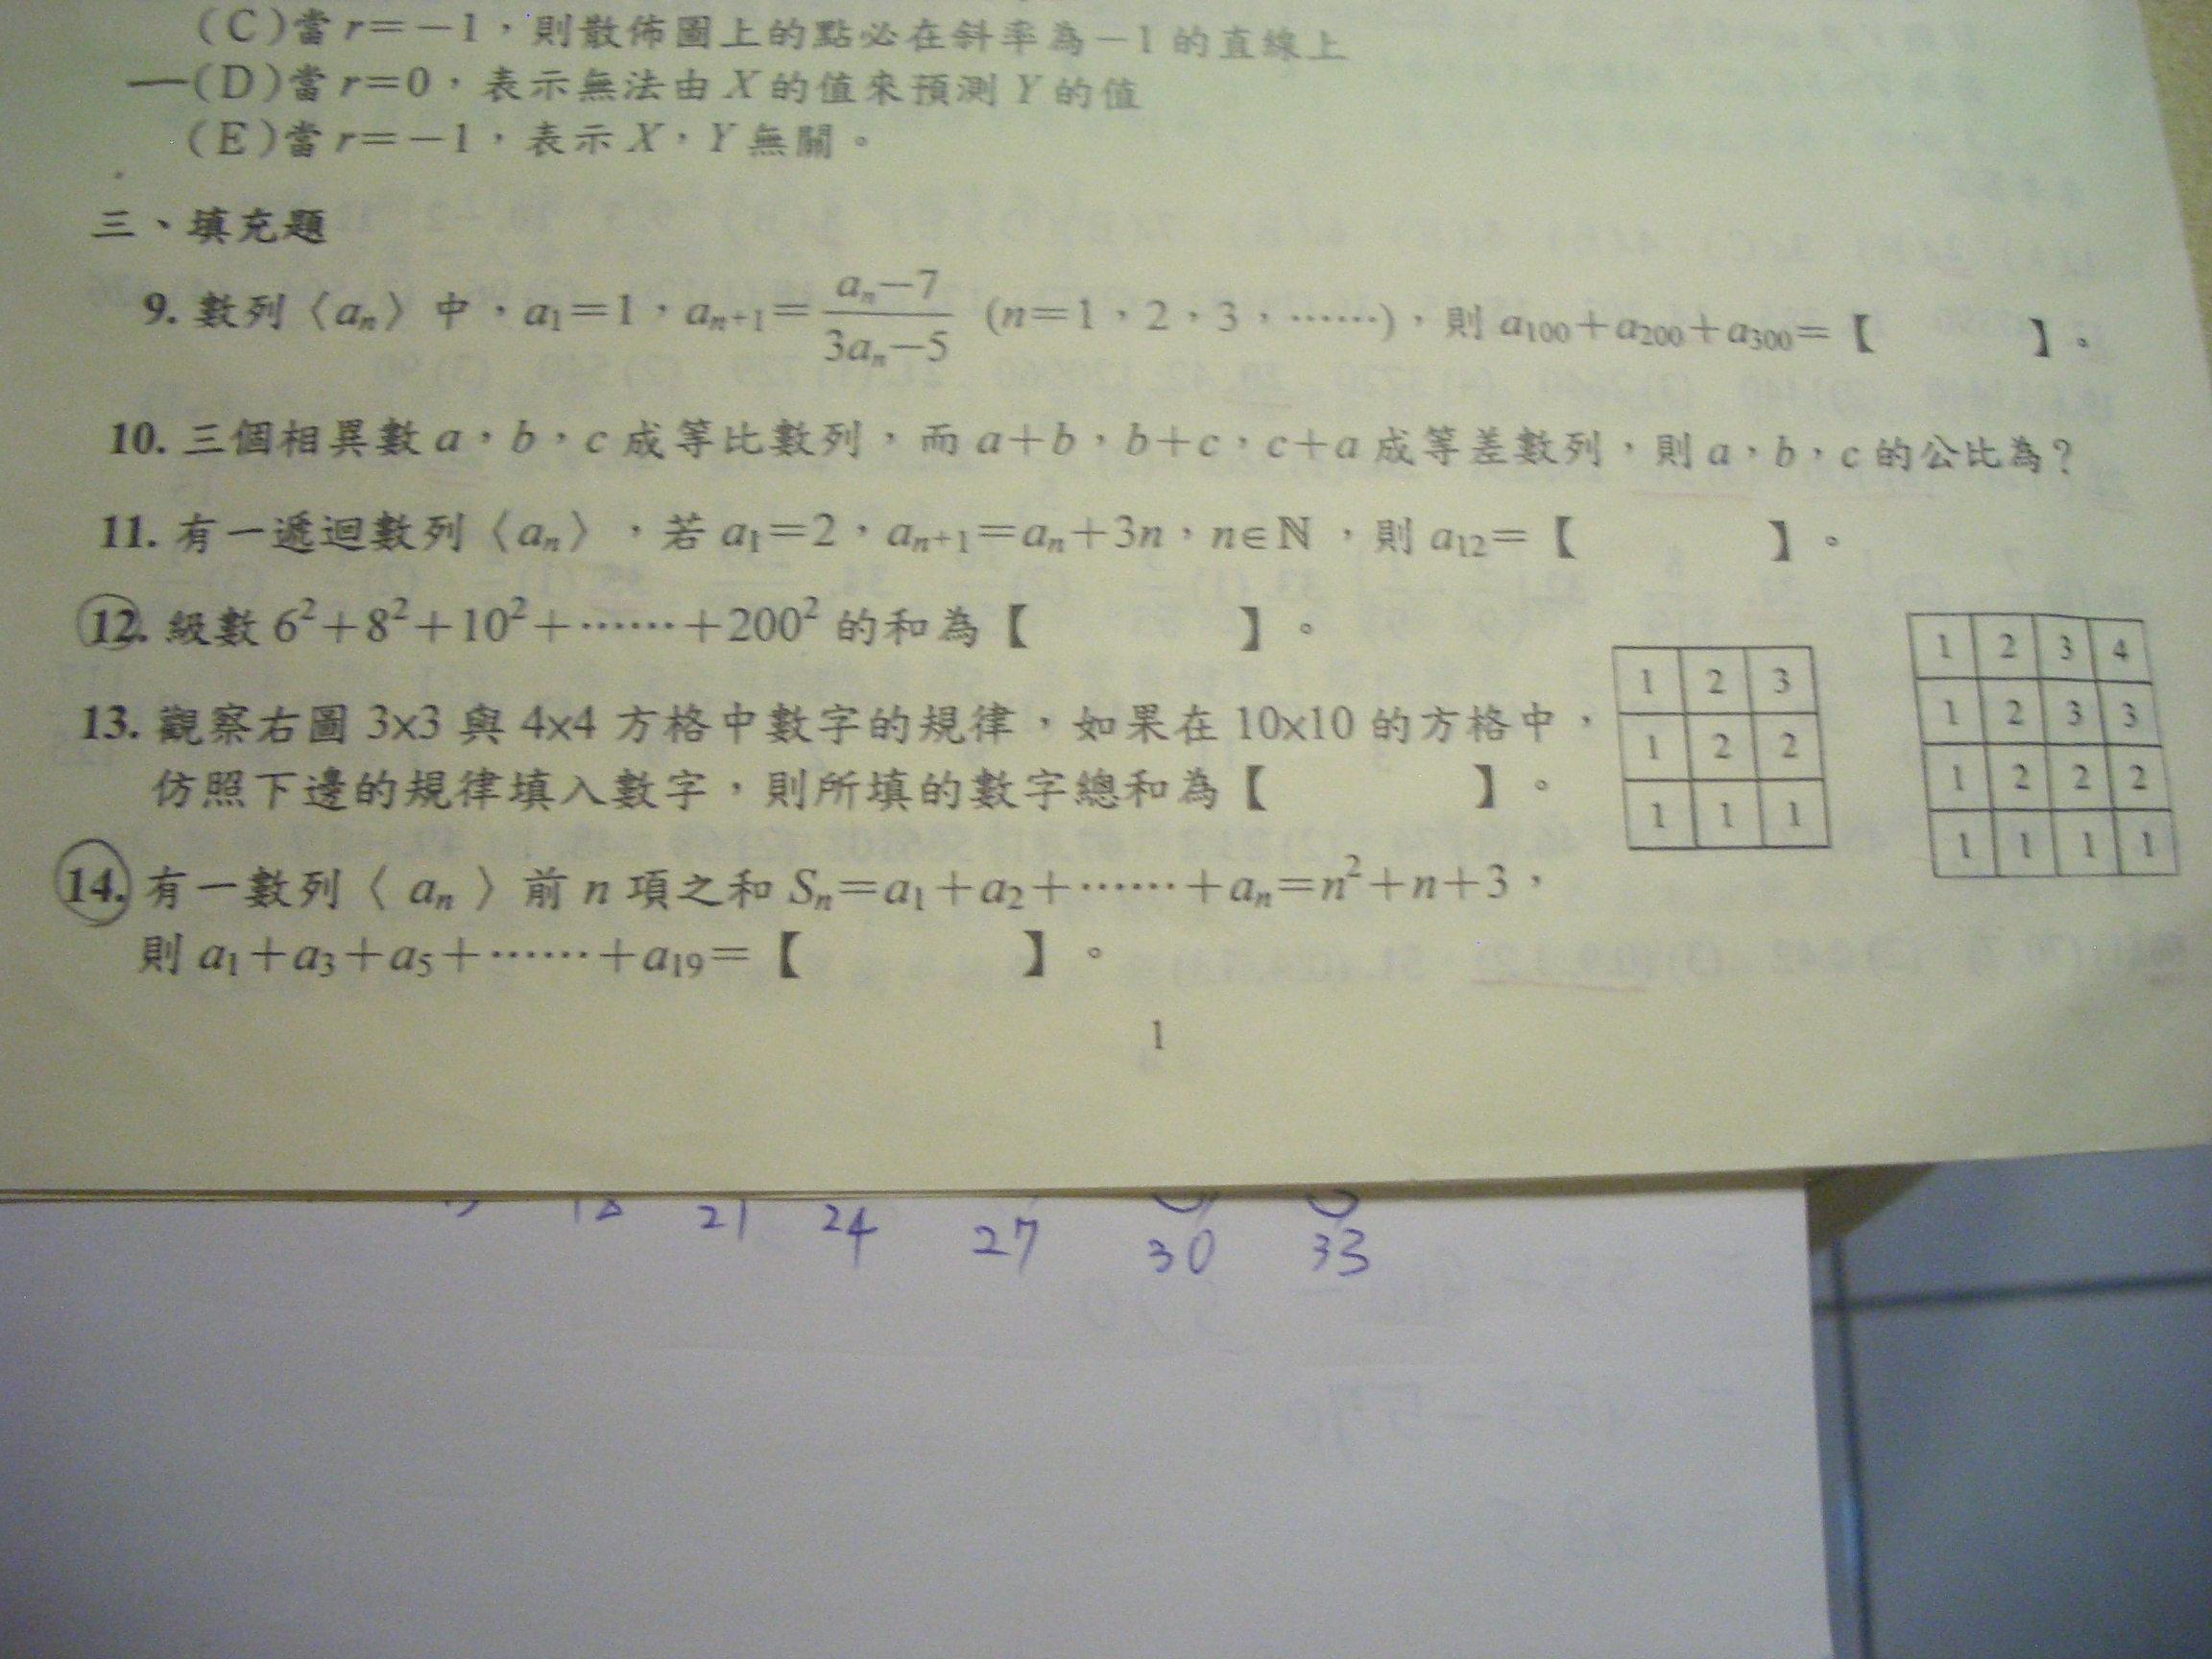 (C)當 r=－1，則散佈圖上的點必在斜率為－1 的直線上
(D)當 r=0，表示無法由 X 的值來預測 Y 的值
(E)當 r=－1，表示 X，Y 無關。
三、填充題
9. 數列〈aₙ〉中，a₁=1，aₙ₊₁=(aₙ－7)/(3aₙ－5) (n=1，2，3，……)，則 a₁₀₀+a₂₀₀+a₃₀₀=【　　】。
10. 三個相異數 a，b，c 成等比數列，而 a+b，b+c，c+a 成等差數列，則 a，b，c 的公比為？
11. 有一遞迴數列〈aₙ〉，若 a₁=2，aₙ₊₁=aₙ+3n，n∈ℕ，則 a₁₂=【　　】。
12. 級數 6²+8²+10²+……+200² 的和為【　　】。
13. 觀察右圖 3x3 與 4x4 方格中數字的規律，如果在 10x10 的方格中，
仿照下邊的規律填入數字，則所填的數字總和為【　　】。
1 2 3
1 2 2
1 1 1
1 2 3 4
1 2 3 3
1 2 2 2
1 1 1 1
14. 有一數列〈 aₙ 〉前 n 項之和 Sₙ=a₁+a₂+……+aₙ=n²+n+3，
則 a₁+a₃+a₅+……+a₁₉=【　　】。
1
18 21 24 27 30 33